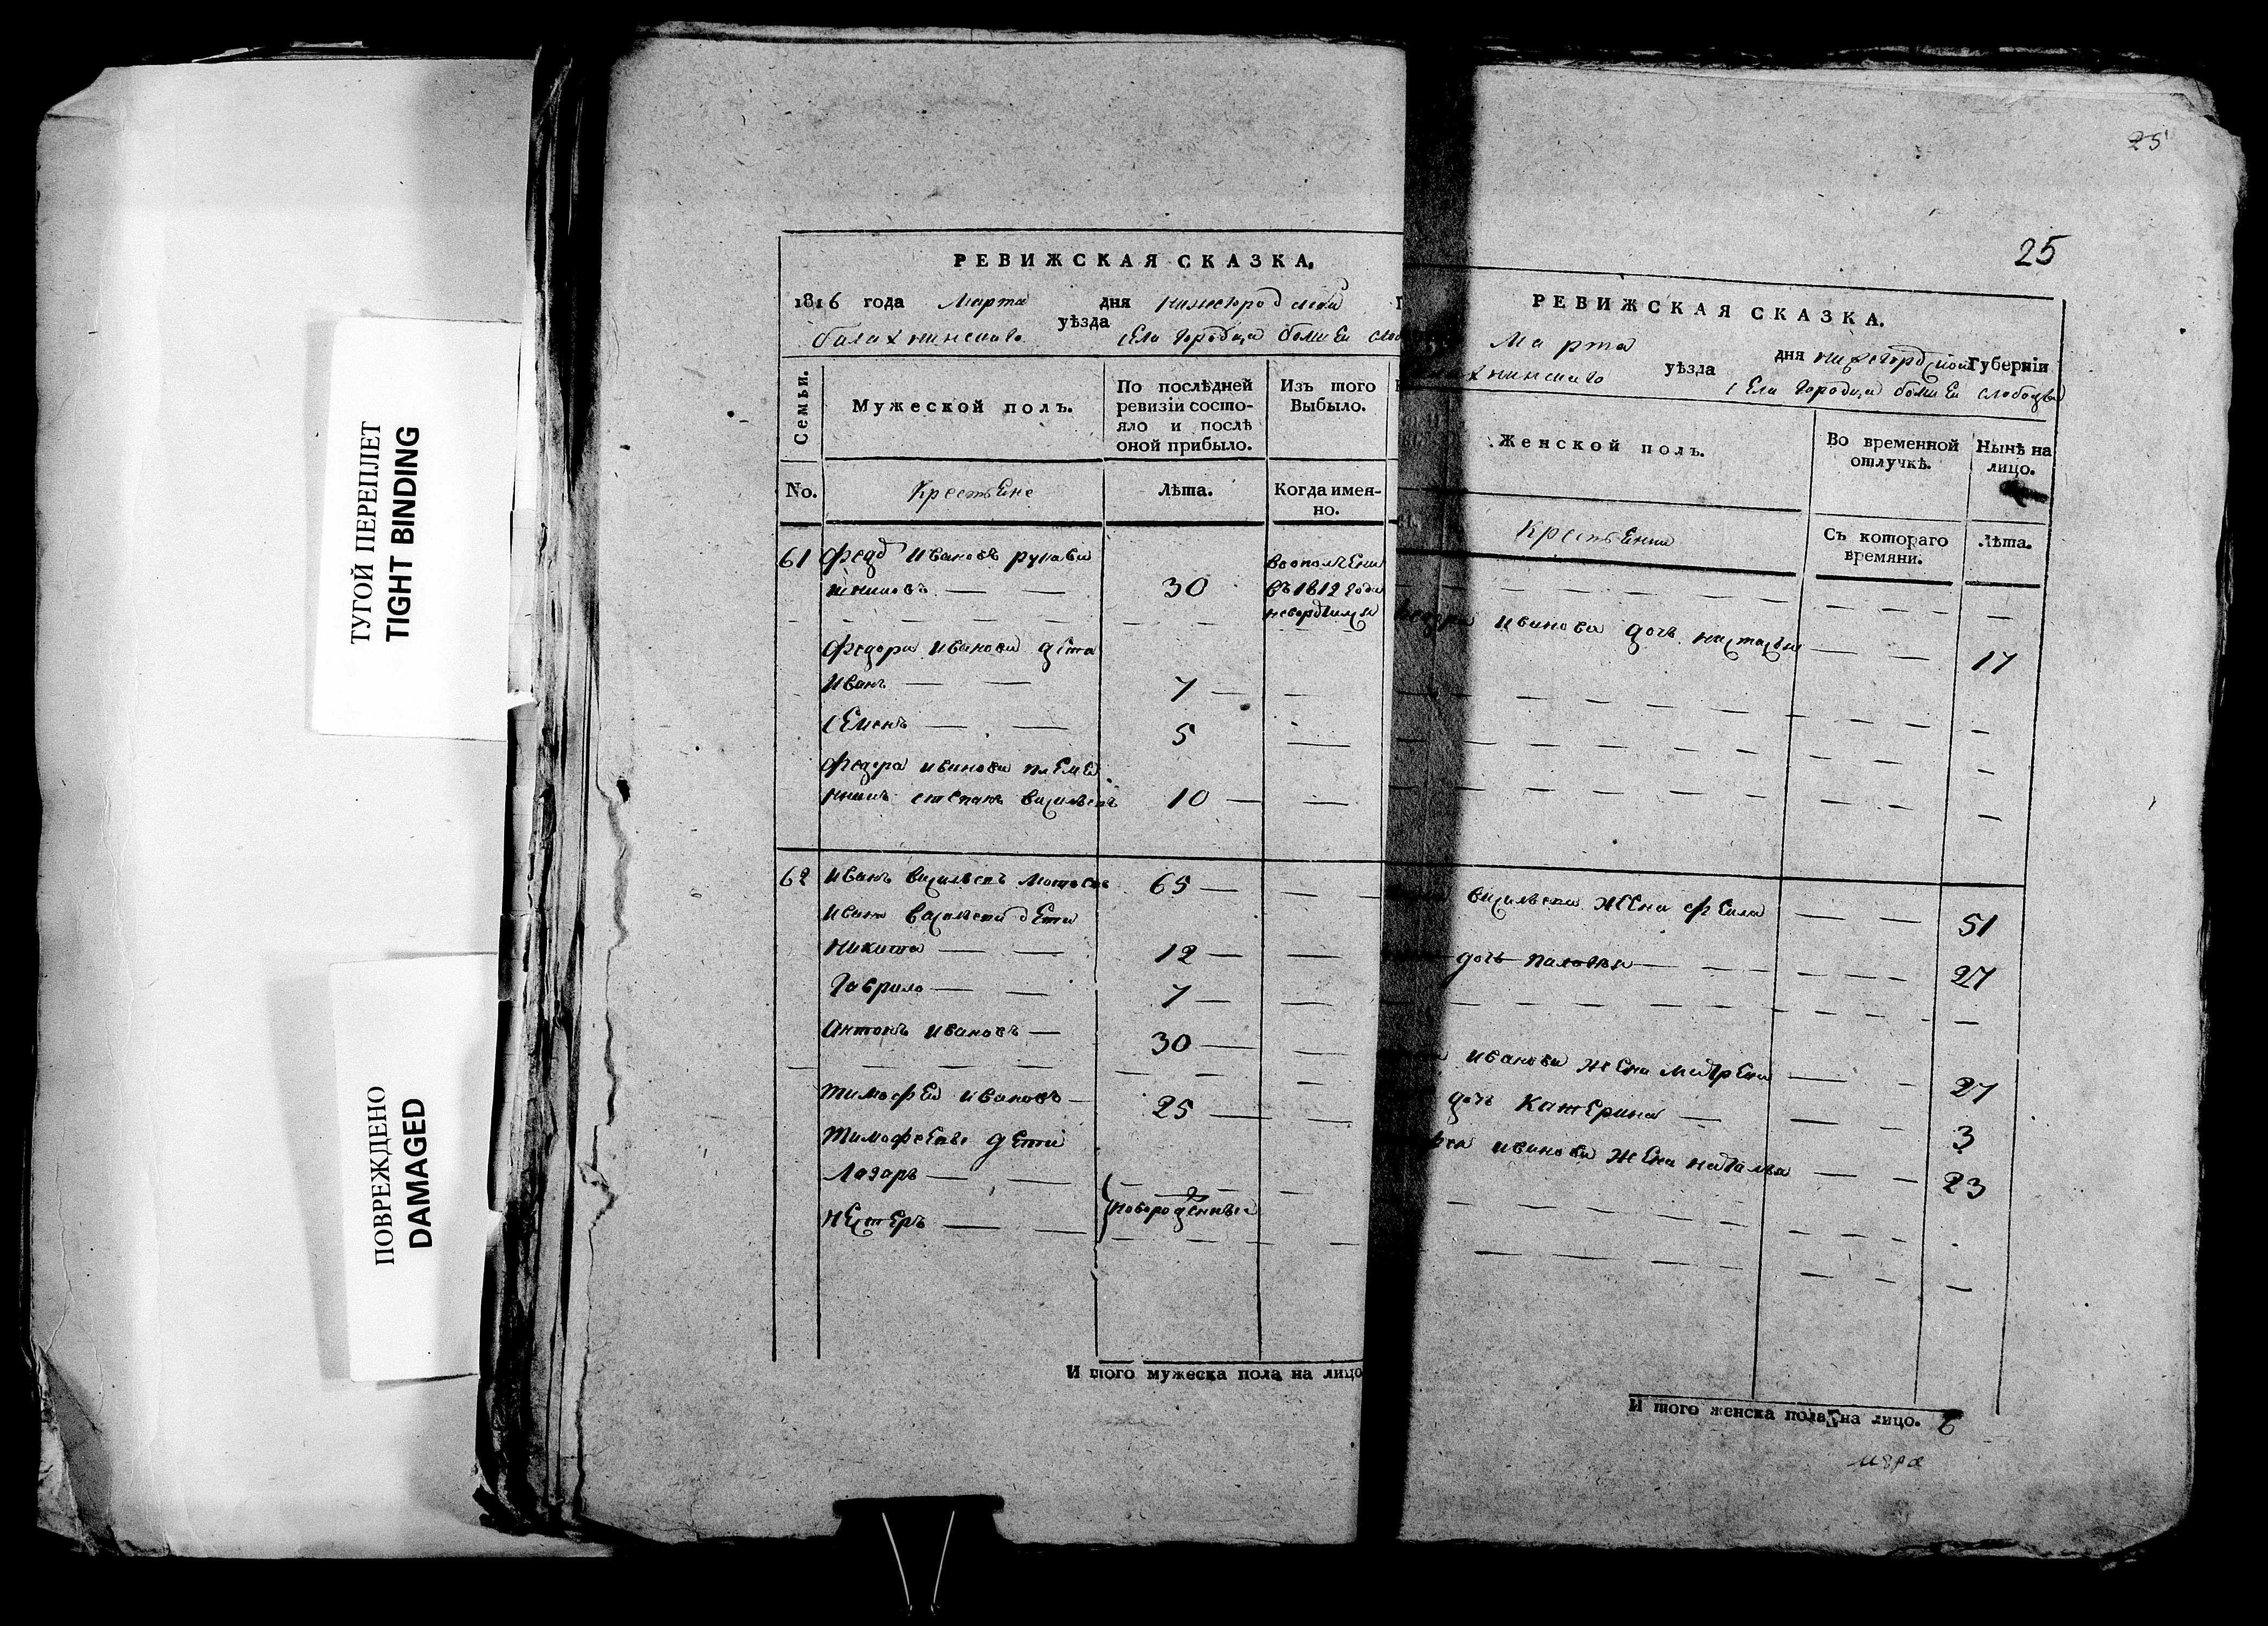 ТУГОЙ ПЕРЕПЛЕТ
TIGHT BINDING
ПОВРЕЖДЕНО
DAMAGED
РЕВИЖСКАЯ СКАЗКА,
1816 года Марта дня нижегородской
балахнинскаго уѣзда села городца болшеи
Семьи.
Мужеской полъ.
По послѣдней
ревизіи состо-
яло и послѣ
оной прибыло.
Изъ того
Выбыло.
No.
Крестьяне
лѣта.
Когда имен-
но.
61 Федоръ Ивановъ рукави
шниковъ 30
вополчени
въ 1812 годе
Федора Иванова дети
Иванъ 7
Семенъ 5
Федора иванова племя
никъ степанъ васильевъ 10
62 Иванъ васильевъ 65
Ивана васильева дети
Никита 12
Гаврило 7
Антонъ Ивановъ 30
Тимофей ивановъ 25
Тимофеевы дети
Лазарь
Нестеръ
новорожденныя
И того мужеска пола на лицо
25
25
РЕВИЖСКАЯ СКАЗКА.
Марта дня нижегородской Губерніи
уѣзда села городца болшеи слободы
Женской полъ.
Во временной
отлучкѣ.
Нынѣ на
лицо.
Крестьянки
Съ котораго
времяни.
лѣта.
иванова дочь настасья 17
васильева жена 51
дочь палагея 27
иванова жена матрена 27
дочь катерина 3
иванова жена наталья 23
И того женска пола на лицо. 6